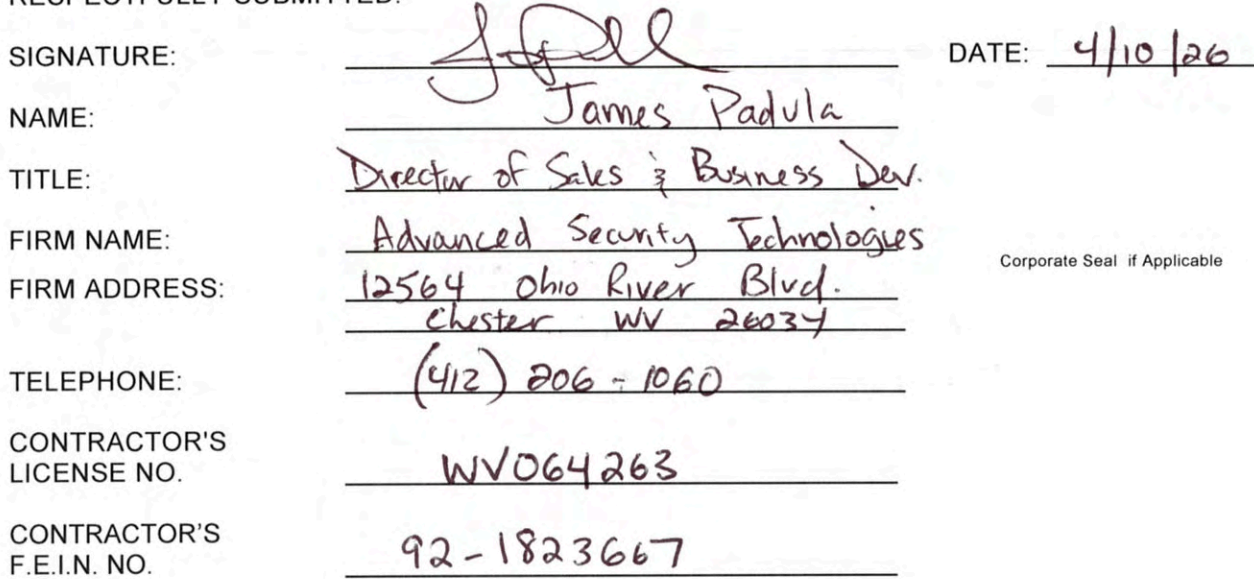 RESPECTFULLY SUBMITTED:
SIGNATURE: DATE: 4/10/26
NAME: James Padula
TITLE: Director of Sales & Business Dev.
FIRM NAME: Advanced Security Technologies
Corporate Seal if Applicable
FIRM ADDRESS: 12564 Ohio River Blvd.
Chester WV 26034
TELEPHONE: (412) 206-1060
CONTRACTOR'S
LICENSE NO. WV064263
CONTRACTOR'S
F.E.I.N. NO. 92-1823667